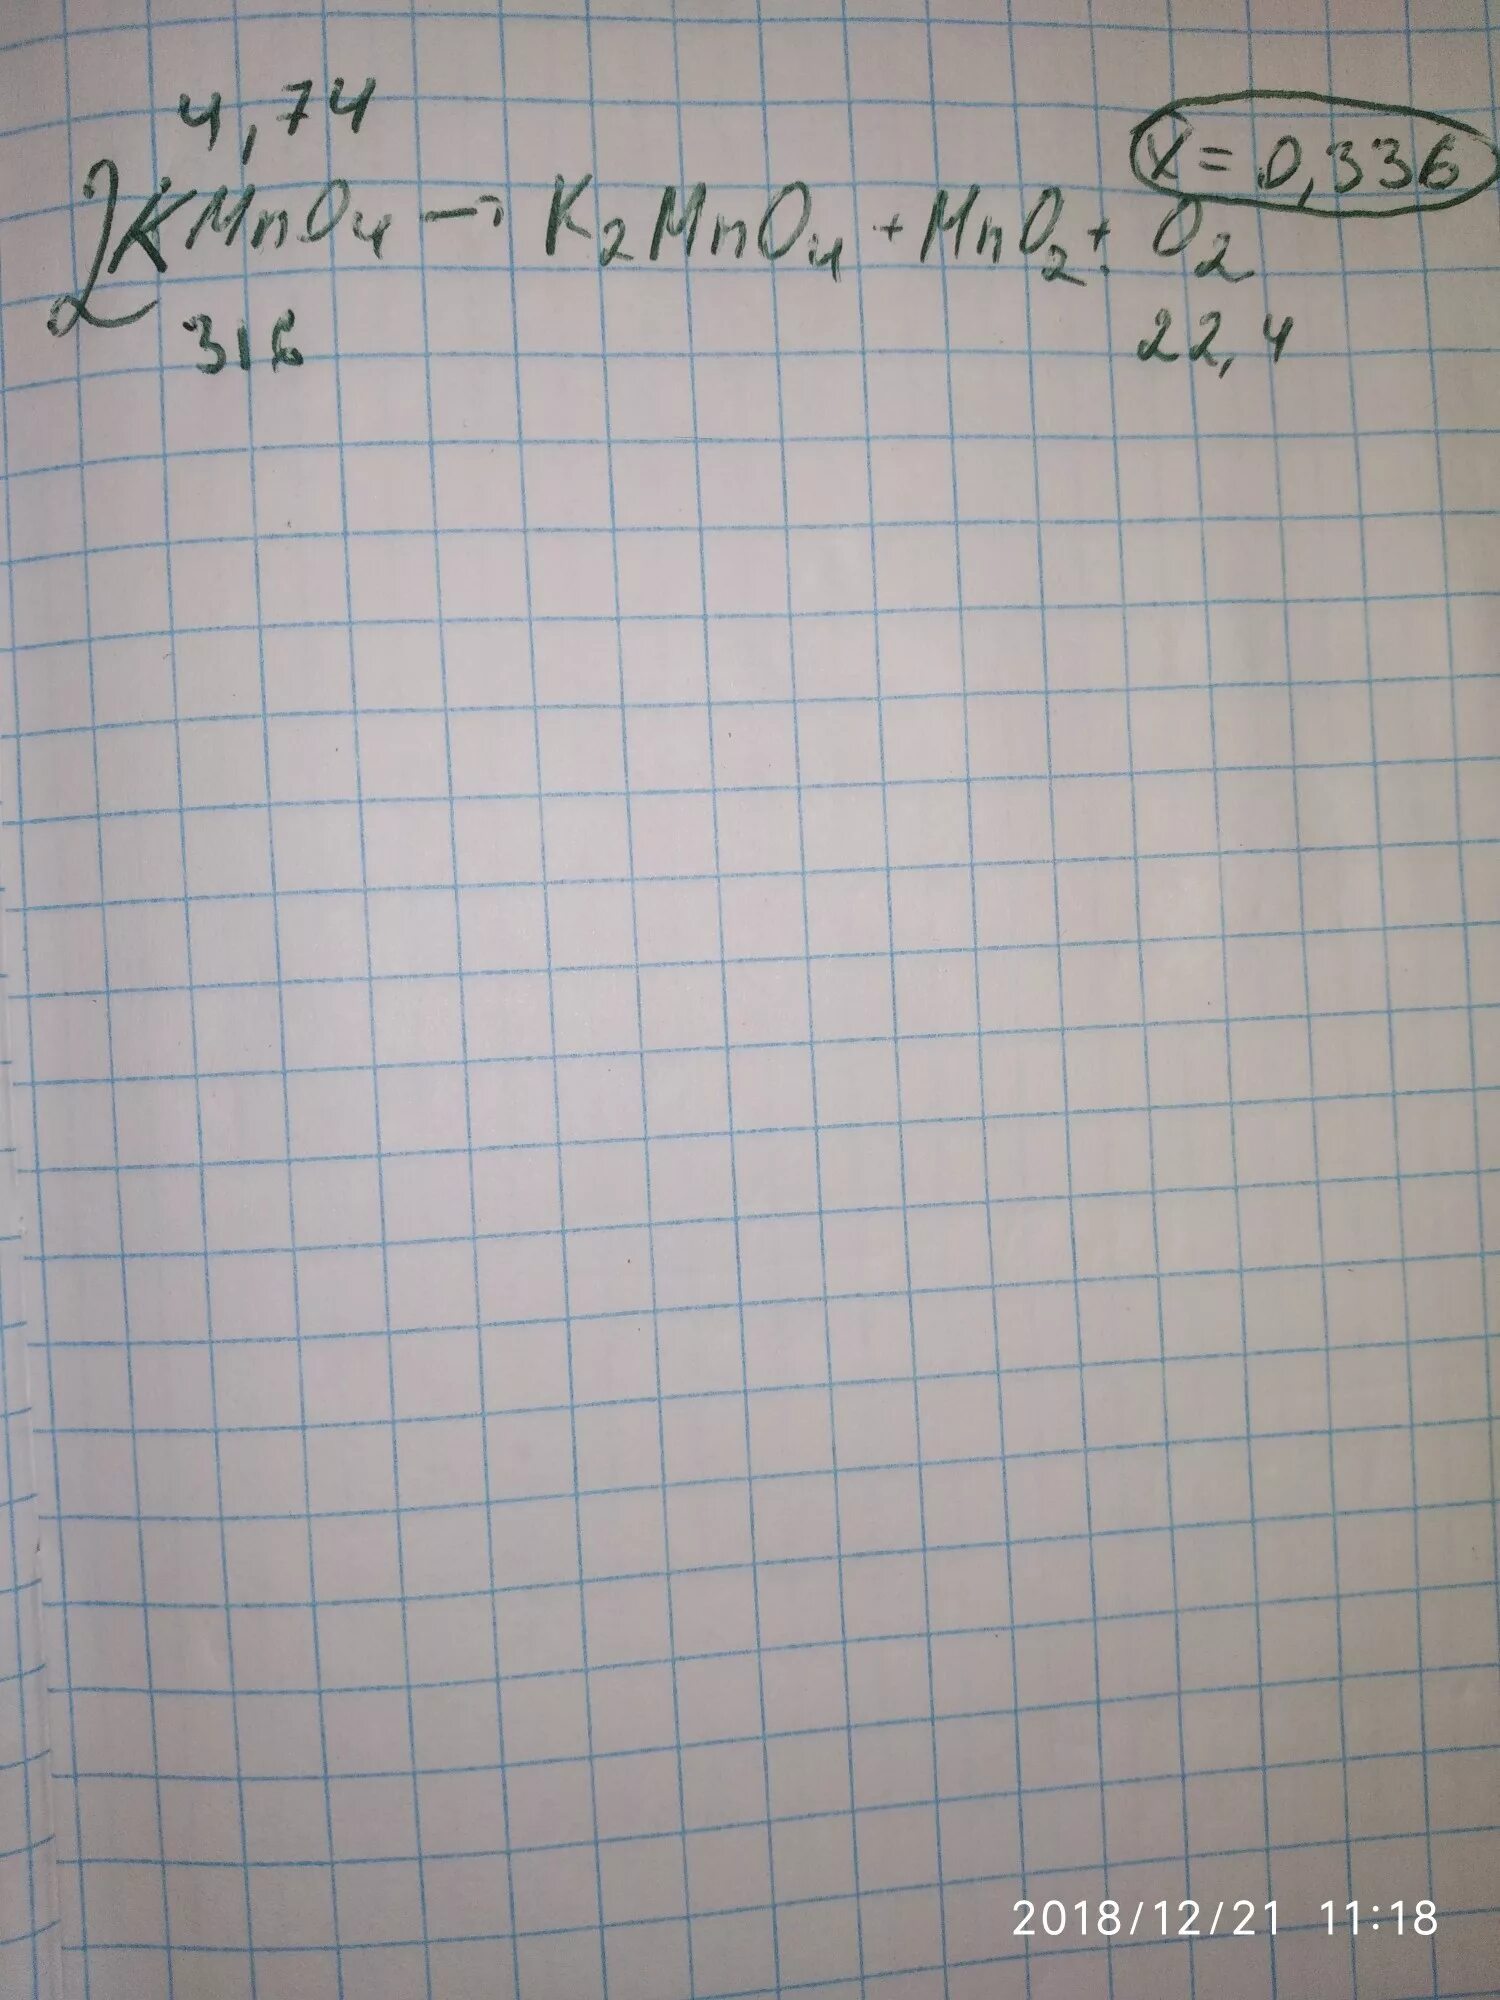 4,74
X = 0,336
2KMnO4 → K2MnO4 + MnO2 + O2
316
22,4
2018/12/21 11:18